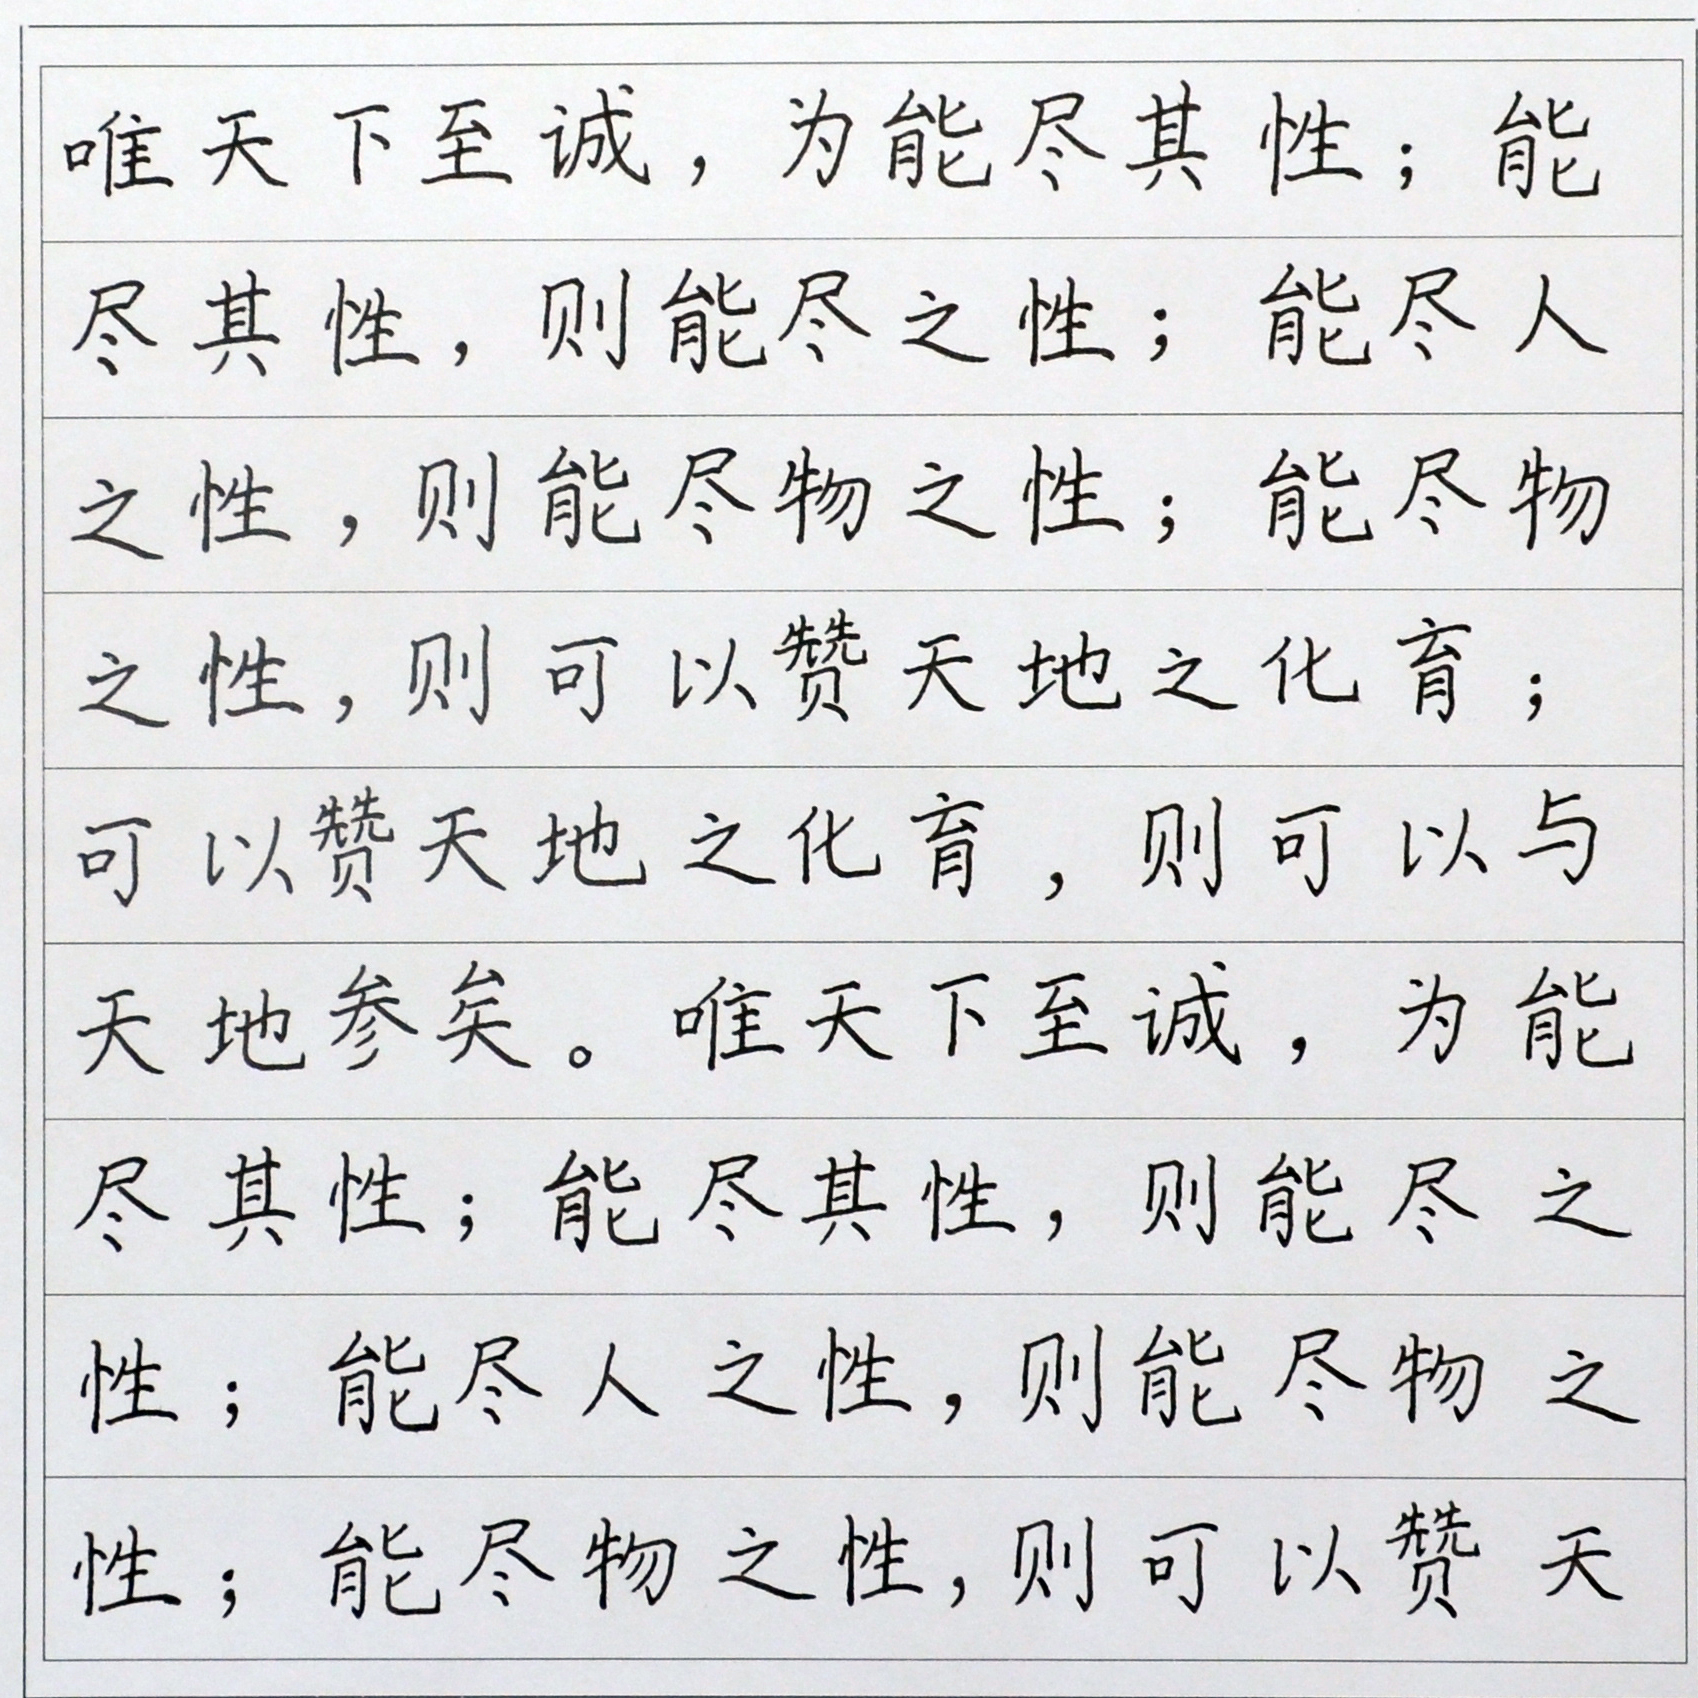 唯天下至诚，为能尽其性；能
尽其性，则能尽之性；能尽人
之性，则能尽物之性；能尽物
之性，则可以赞天地之化育；
可以赞天地之化育，则可以与
天地参矣。唯天下至诚，为能
尽其性；能尽其性，则能尽之
性；能尽人之性，则能尽物之
性；能尽物之性，则可以赞天